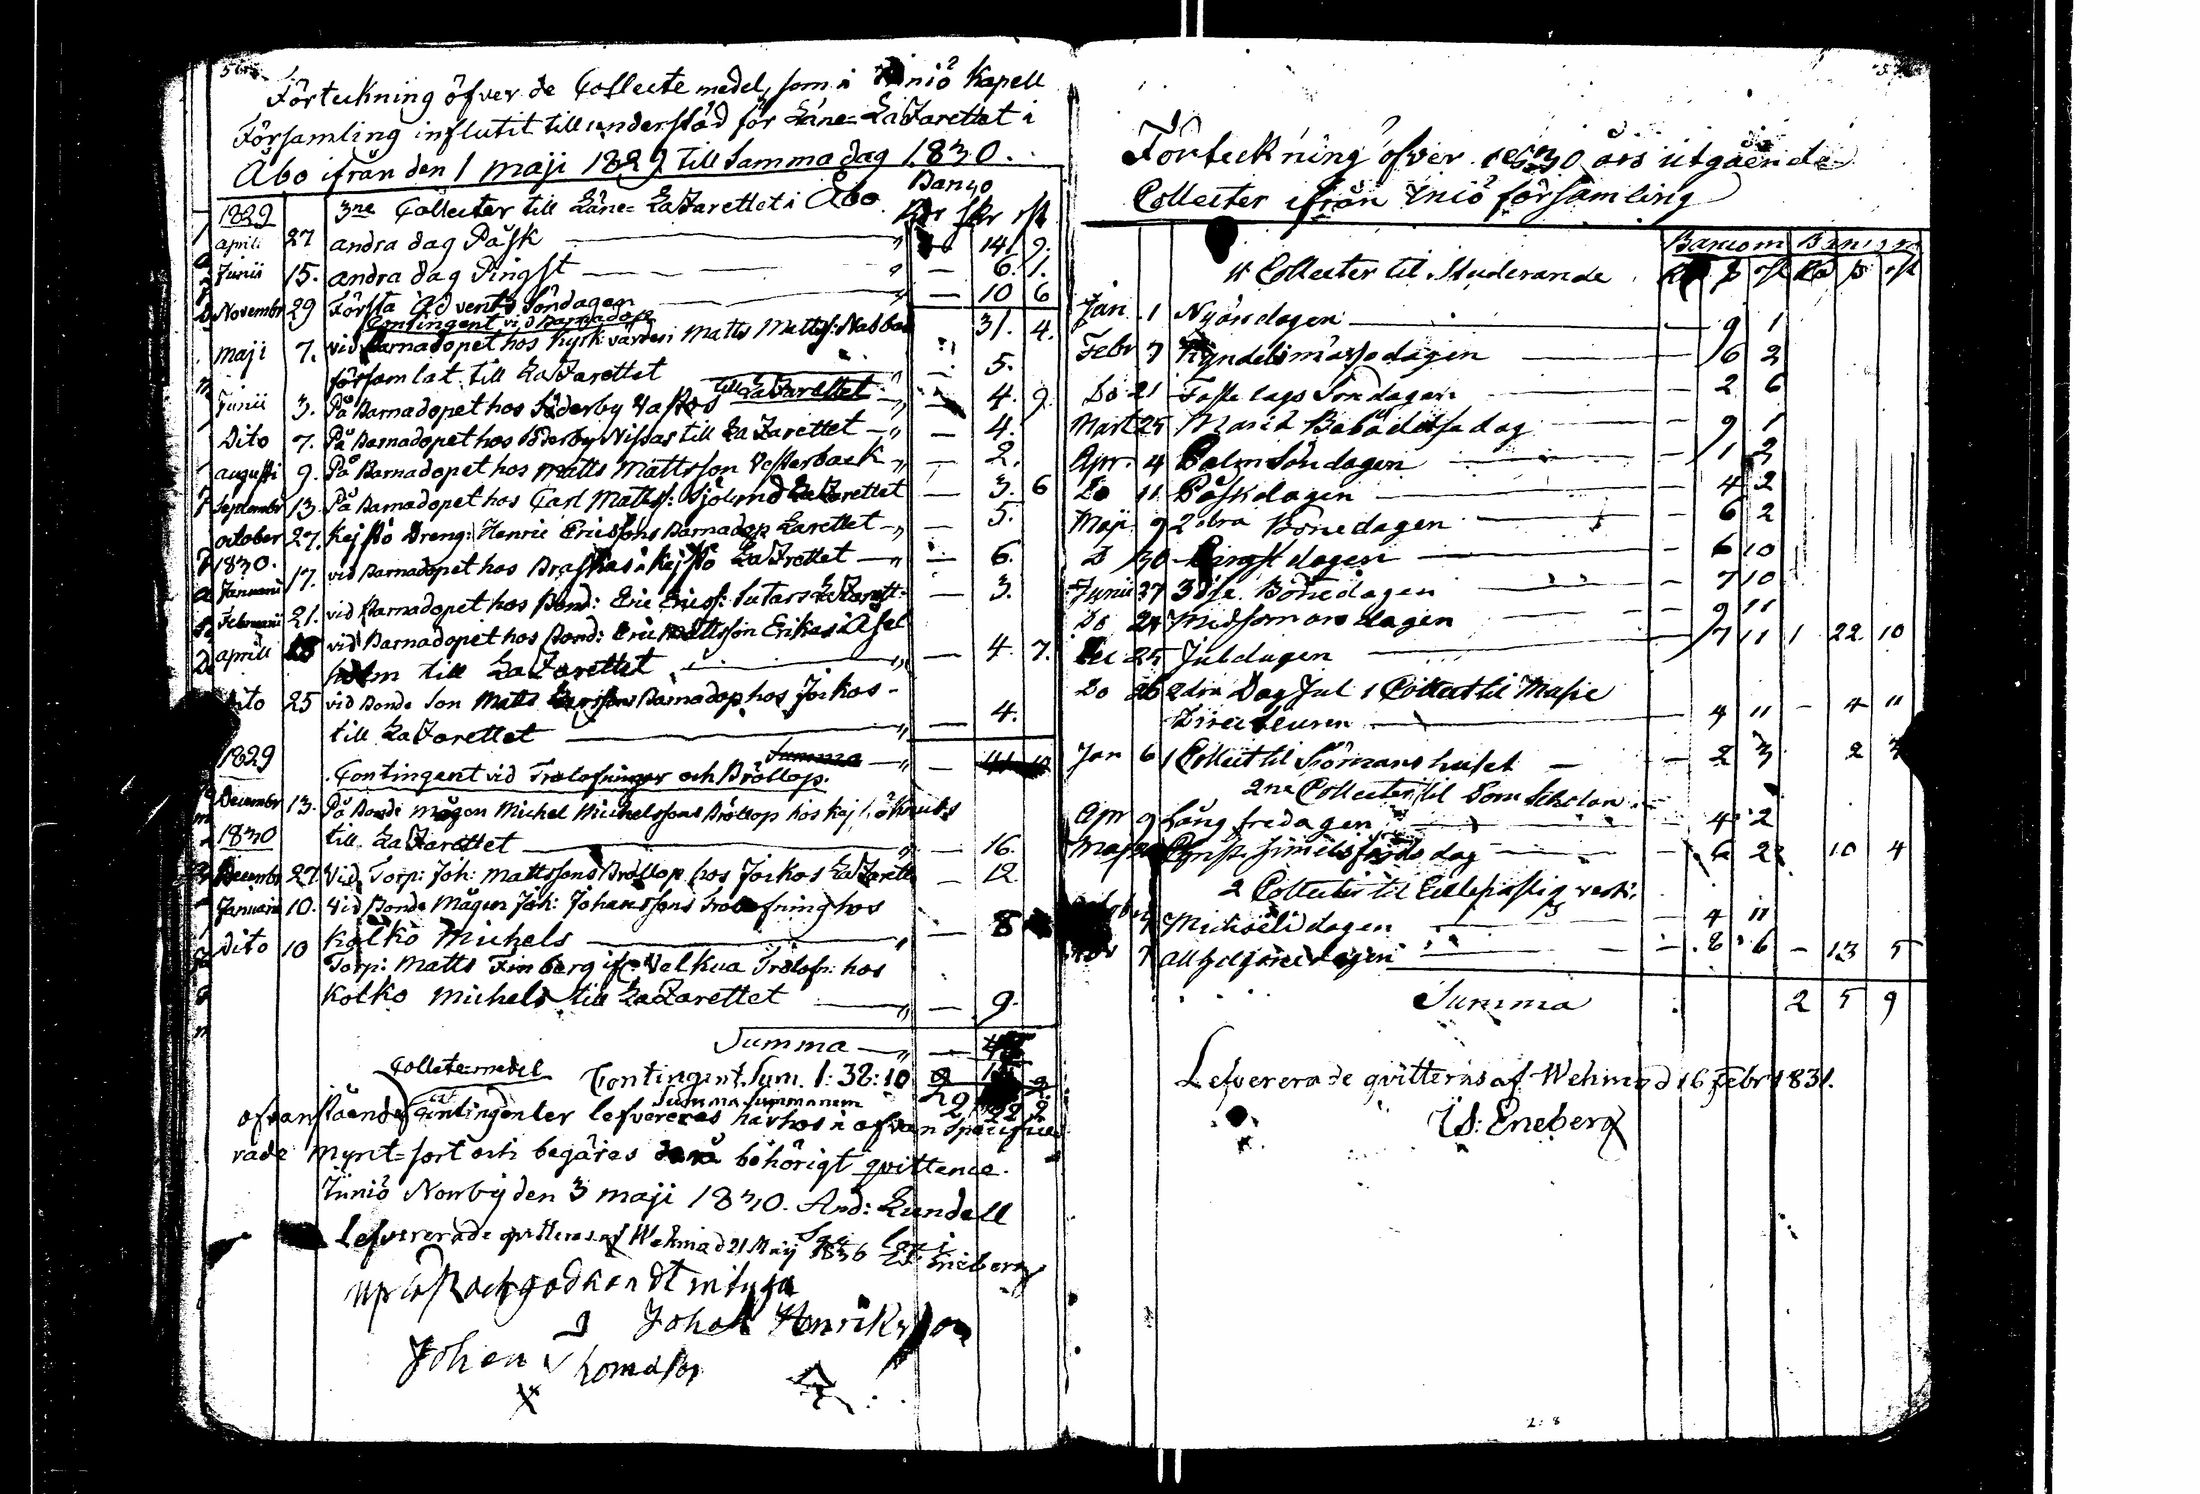 Förteckning öfver de Collecte medel, som i Iniö Kapell
Församling influtit till understöd för Läne-Lazarettet i
Åbo ifrån den 1 maji 1829 till samma dag 1830.
Banco
1829 3ne Collecter till Läne-Lazarettet i Åbo Rdr skr rst
April 27 andra dag Påsk — " — 14. 9.
Junii 15. andra dag Pingst — " — 6. 1.
Novembr 29 Första Advents Söndagen — " — 10 6
Contingent vid Barnadop 31. 4.
maji 7. vid Barnadopet hos Kyrk: värden Matts Mattss: Nabba
församlat till Lazarettet — 5.
Junii 3. På Barnadopet hos Söderby till Lazarettet — " — 4. 9
Dito 7. På Barnadopet hos Söderby Nissas till Lazarettet — " — 4.
augusti 9. På Barnadopet hos Matts Mattsson Vesterback — " — 2.
Septembr 13. På Barnadopet hos Carl Mattss: Lazarettet — 3. 6
october 27. Kejstö Dreng: Henric Ericssons Barnadop — " — 5.
1830.
Januarii 17. vid Barnadopet hos i Kejstö — " — 6.
Februarii 21. vid Barnadopet hos Bond: Eric Ericss: — 3.
aprill vid Barnadopet hos Bond: Eric Mattsson Erikas i
holm till Lazarettet — " — 4. 7.
Dito 25 vid Bonde Son Matts Barnadop hos Jockos
till Lazarettet — " — 4.
1829 Summa — " —
Contingent vid Trolofningar och Bröllop.
Decembr 13. På Bonde mågen Michel Michelssons Bröllop hos
1830 till Lazarettet — " — 16.
Decembr 27 Vid Torp: Joh: Mattssons Bröllop hos Jockos — 12
Januarii 10. Vid Bonde Mågen Joh: Johanssons Trolofning hos
Kolko Michels — " — 8
Dito 10 Torp: Matts Finberg ifr: Velkua Trolofn: hos
Kolko Michels till Lazarettet — " — 9.
Summa — " —
Collecte-medel Contingent. Sum. 1: 38: 10
Summa Summarum
ofvanstående Contingenter lefvereras härhos i ofvan specifice
rade Mynt-sort och begäres behörigt qvittence.
Iniö Norrby den 3 maji 1830. And: Lundell
Lefvererade qvitteras af Wehmo d 21 Maij Eneberg
och godkändt intyga
Johan Henriksson
Johan Thomasson
Förteckning öfver 1830 års utgående
Collecter ifrån Iniö församling
11 Collecter til Studerande
Jan 1 Nyårsdagen — 9 1
Febr 7 Kyndelsmässodagen — 6 2
Do 21 Fastelags Söndagen — 2 6
Mart 25 Mariæ Bebådelse dag — 9 1
Apr. 4 Palm Söndagen — 1 2
Do 11 Påskdagen — 4 2
Maji 9 2dra Bönedagen — 6 2
D 30 Pingstdagen — 6 10
Junii 27 3dje Bönedagen — 7 10
Do 24 Midsommarsdagen — 9 11
Dec 25 Juldagen — 7 11 1 22 10
Do 26 2dra Dag Jul 1 Collect til Music
Directeuren — 4 11 — 4 11
Jan 6 1 Collect til Sörmans huset — 2 3 2 3
2ne Collecter til Dom Scholan
Apr 9 Långfredagen — 4 2
Maj 20 Christi himmelsfärds dag — 6 2 10 4
2 Collecter til
Michaeli dagen — 4 11
7 Allhelgonedagen — 8 6 — 13 5
Summa 2 5 9
Lefvererade qvitteras af Wehmo d 16 Febr 1831.
Eneberg